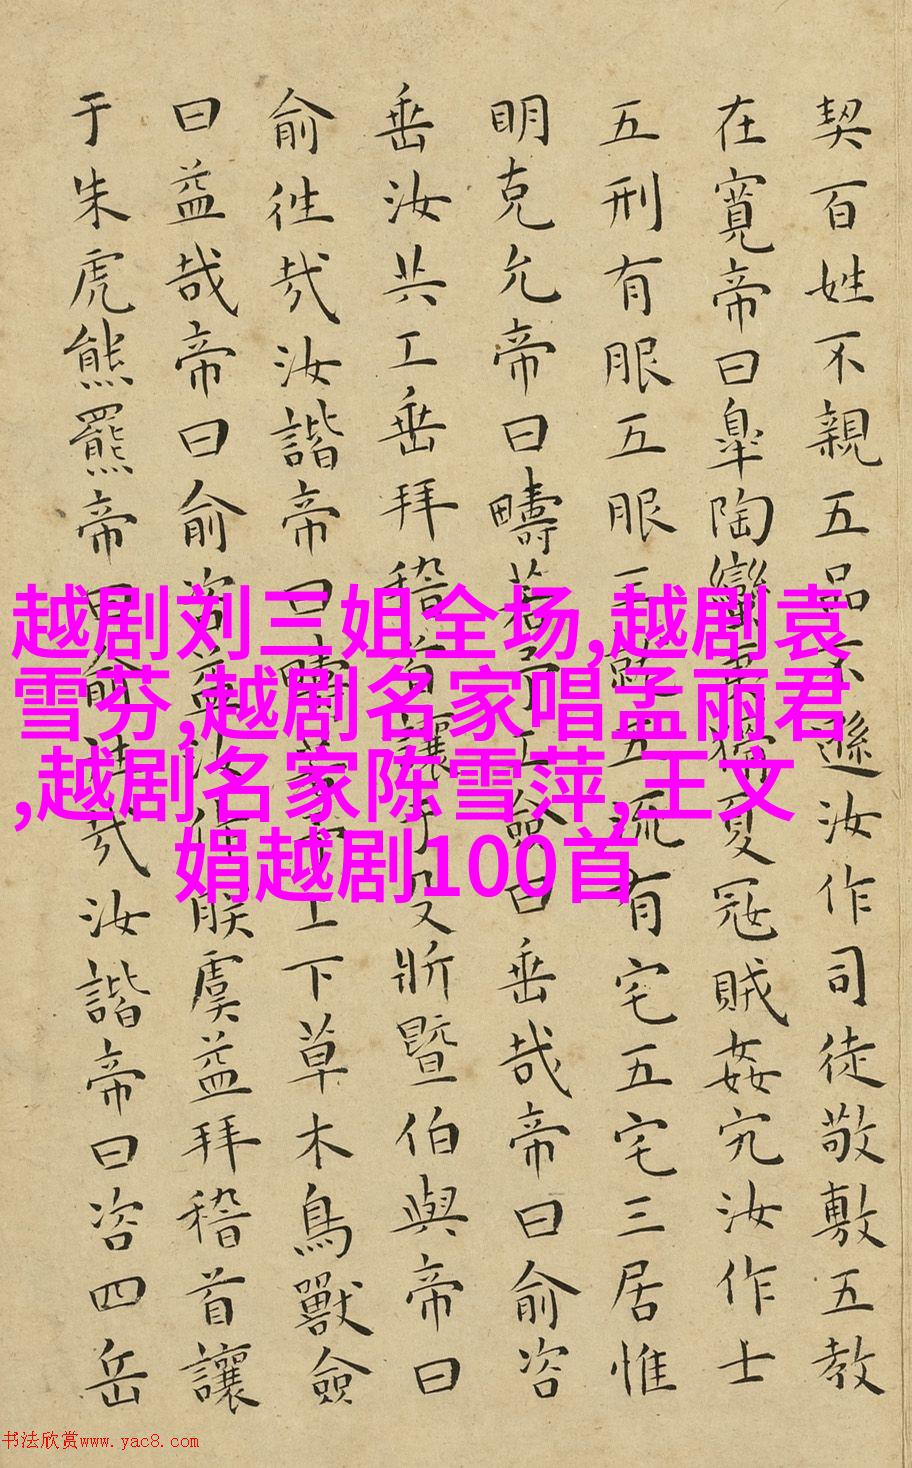 契百姓不親五品不遜汝作司徒敬敷五教
在寬帝曰皐陶蠻夷猾夏寇賊姦宄汝作士
五刑有服五服三就五流有宅五宅三居惟
明克允帝曰疇若予工僉曰垂哉帝曰俞咨
垂汝共工垂拜稽首讓于殳斨暨伯與帝曰
俞往哉汝諧帝曰疇若予上下草木鳥獸僉
曰益哉帝曰俞咨益汝作朕虞益拜稽首讓
于朱虎熊羆帝曰俞往哉汝諧帝曰咨四岳
越剧刘三姐全场,越剧袁
雪芬,越剧名家唱孟丽君
,越剧名家陈雪萍,王文
娟越剧100首
书法欣赏www.yac8.com